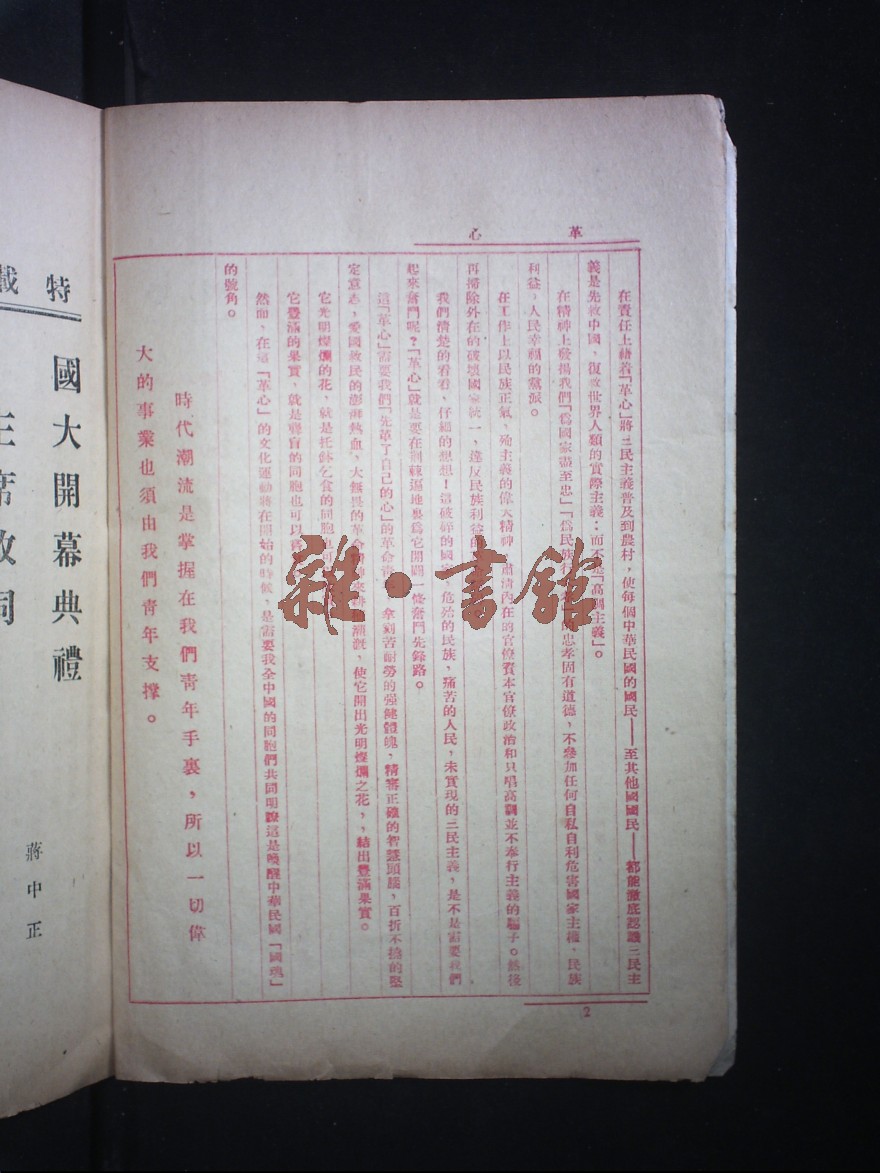 革心
在責任上藉着「革心」將三民主義普及到農村，使每個中華民國的國民——至其他國國民——都能澈底認識三民主
義是先救中國，復救世界人類的實際主義；而不是「高調主義」。
在精神上發揚我們「爲國家盡至忠」「爲民族行 忠孝固有道德，不參加任何自私自利危害國家主權、民族
利益，人民幸福的黨派。
在工作上以民族正氣，殉主義的偉大精神 肅清內在的官僚資本官僚政治和只唱高調並不奉行主義的騙子。然後
再掃除外在的破壞國家統一，違反民族利益的
我們清楚的看看，仔細的想想！這破碎的國家 危殆的民族，痛苦的人民，未實現的三民主義，是不是需要我們
起來奮鬥呢？「革心」就是要在荆棘遍地裏爲它開闢一條奮鬥先鋒路。
這「革心」需要我們「先革了自己的心」的革命 拿刻苦耐勞的强健體魄，精審正確的智慧頭腦，百折不撓的堅
定意志，愛國救民的澎湃熱血，大無畏的革命 來 灌漑，使它開出光明燦爛之花，，結出豐滿果實。
它光明燦爛的花，就是托鉢乞食的同胞也可
它豐滿的果實，就是聾盲的同胞也可以
然而，在這「革心」的文化運動將在開始的時候，是需要我全中國的同胞們共同明瞭這是喚醒中華民國「國魂」
的號角。
時代潮流是掌握在我們靑年手裏，所以一切偉
大的事業也須由我們靑年支撑。
2
特載
國大開幕典禮
主席致詞
蔣中正
雜·書館